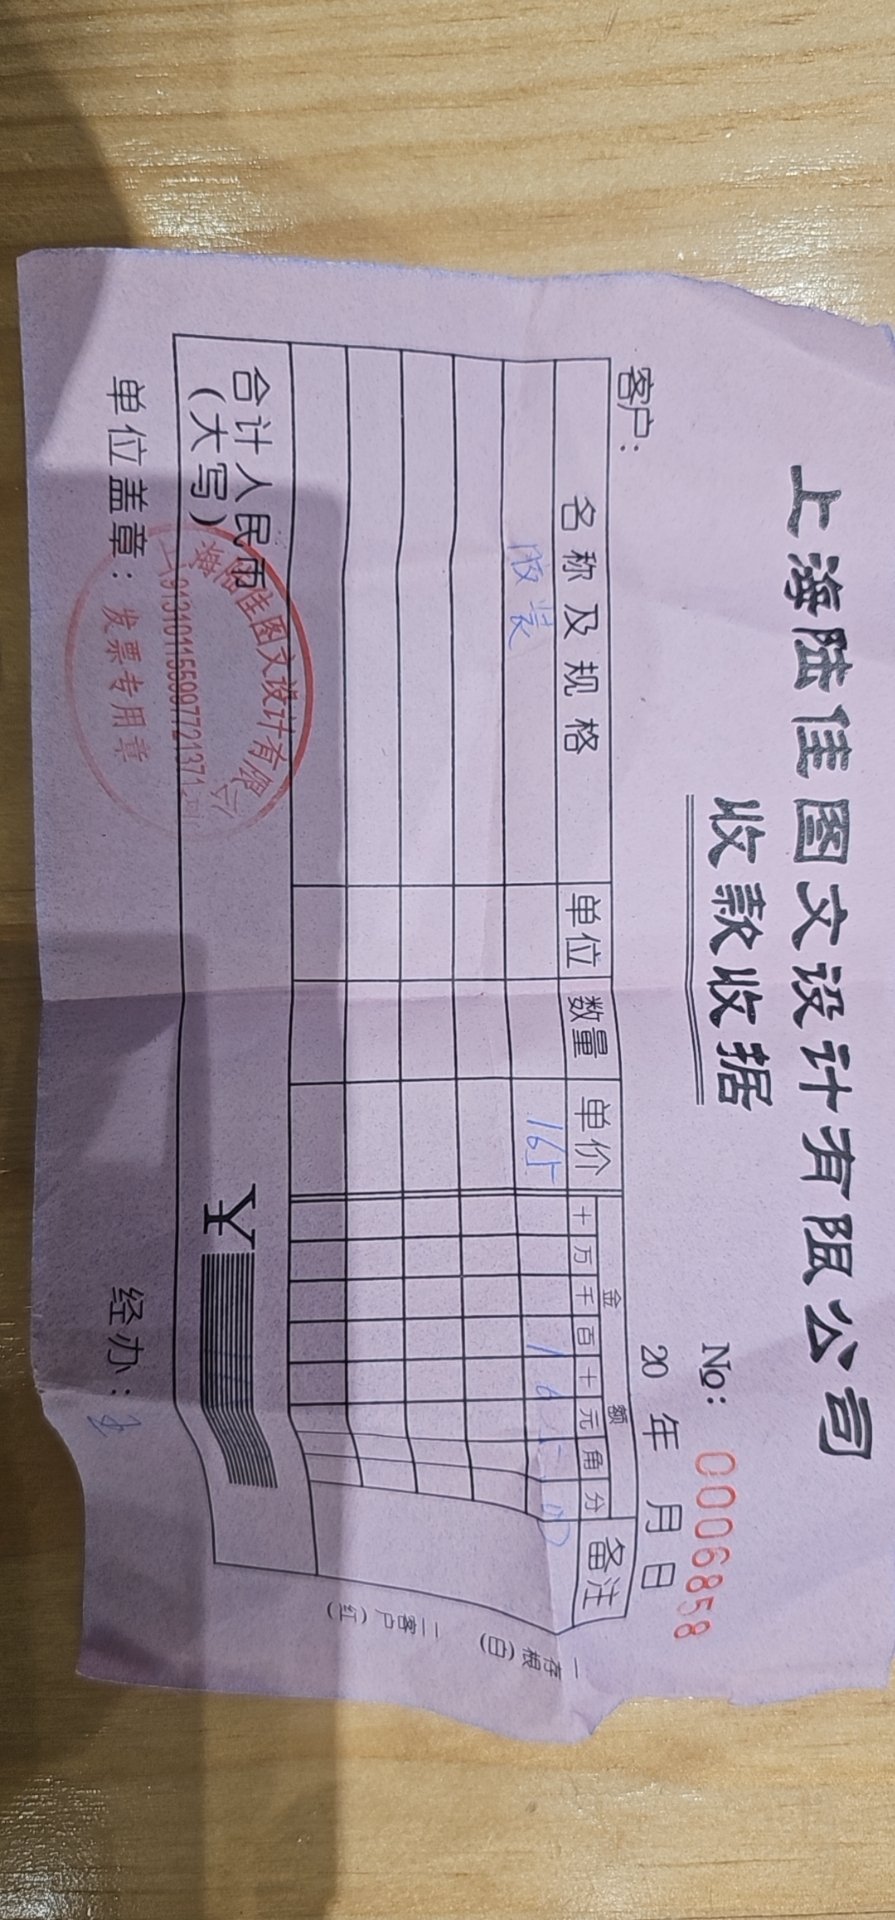 上海陆佳图文设计有限公司
收款收据
No: 0006858
客户:
20 年 月 日
名称及规格 单位 数量 单价 金额 备注
十 万 千 百 十 元 角 分
胶装 165 1 6 5 00
合计人民币
(大写)
¥
单位盖章:
经办:
上海陆佳图文设计有限公司
发票专用章
一存根(白)
二客户(红)